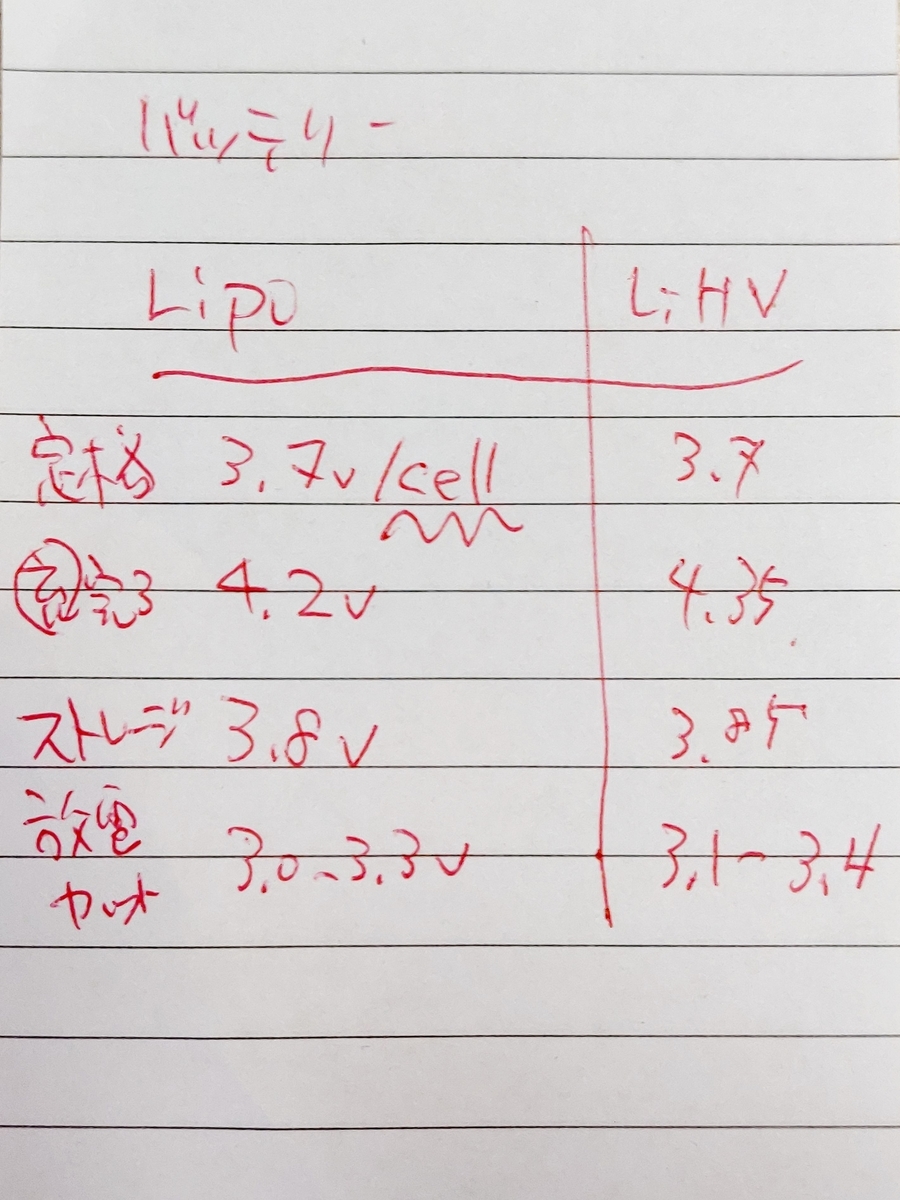 バッテリー
Lipo LiHV
定格 3.7v/cell 3.7
4.2v 4.35
ストレージ 3.8v 3.85
放電 3.0~3.3v 3.1~3.4
カット